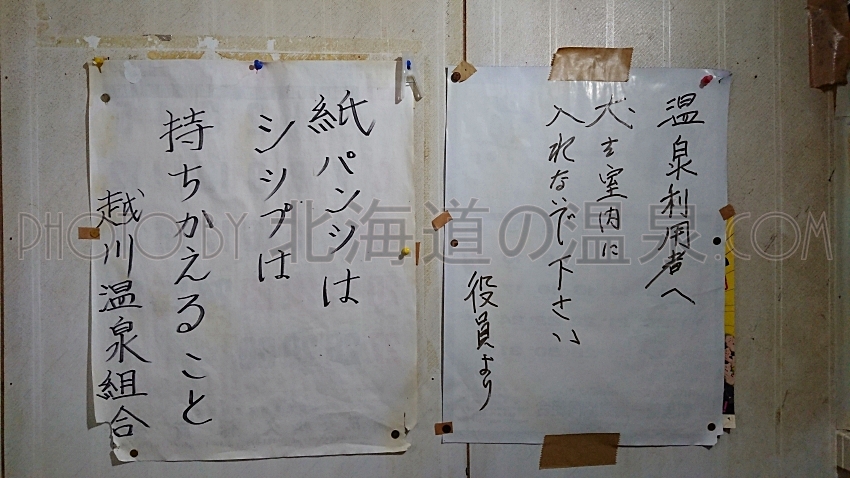 温泉利用者へ
犬を室内に
入れないで下さい
役員より
紙パンツは
シップは
持ちかえること
越川温泉組合
PHOTO BY 北海道の温泉.COM